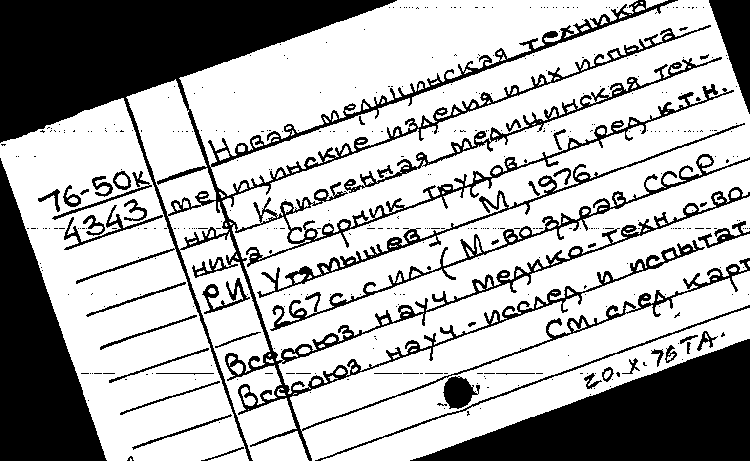 Новая медицинская техника,
медицинские изделия и их испыта-
ния. Криогенная медицинская тех-
ника. Сборник трудов. [Гл. ред. к.т.н.
Р.И. Утямышев]. М., 1976.
267 с. с ил. (М-во здрав. СССР.
Всесоюз. науч. медико-техн. о-во.
Всесоюз. науч.-исслед. и испытат.
См. след. карт
76-50к
4343
20.X.76 ТА.